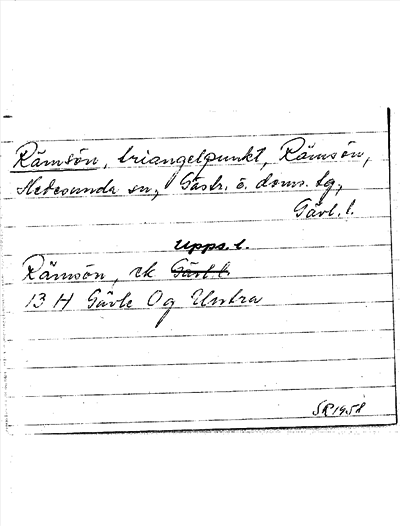 Rämsön, triangelpunkt, Rämsön,
Hedesunda sn, Gästr. ö. doms. tg,
Gävl. l.
Upps. l.
Rämsön, rk Gävl. l.
13 H Gävle Og Untra
SR 1958